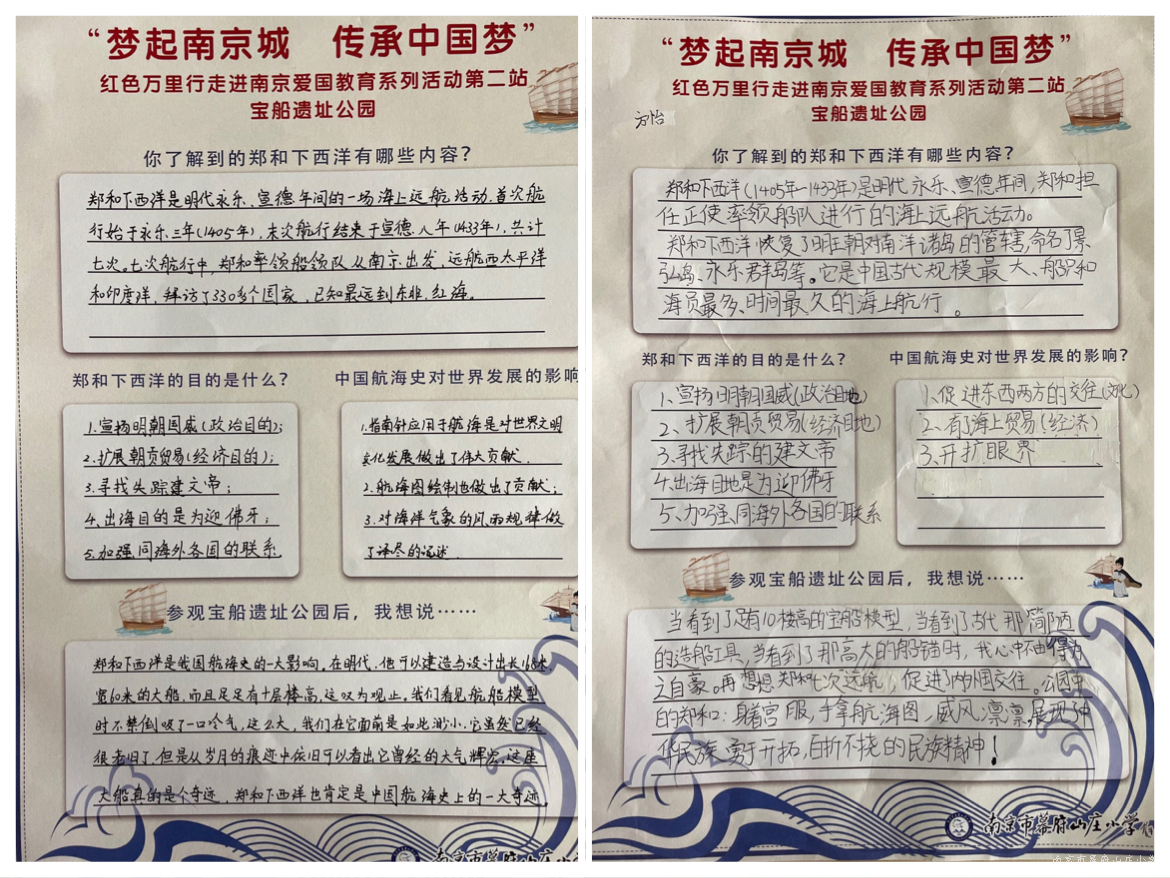 “梦起南京城 传承中国梦”
红色万里行走进南京爱国教育系列活动第二站
宝船遗址公园
你了解到的郑和下西洋有哪些内容？
郑和下西洋是明代永乐、宣德年间的一场海上远航活动，首次航
行始于永乐三年(1405年)，末次航行结束于宣德八年(1433年)，共计
七次。七次航行中，郑和率领船领队从南京出发，远航西太平洋
和印度洋，拜访了330多个国家，已知最远到东非、红海。
郑和下西洋的目的是什么？
1.宣扬明朝国威(政治目的)；
2.扩展朝贡贸易(经济目的)；
3.寻找失踪建文帝；
4.出海目的是为迎佛牙；
5.加强同海外各国的联系
中国航海史对世界发展的影响
1.指南针应用于航海是对世界文明
文化发展做出了伟大贡献
2.航海图绘制也做出了贡献；
3.对海洋气象的风雨规律做
了详尽的论述
参观宝船遗址公园后，我想说……
郑和下西洋是我国航海史的一大影响，在明代，他可以建造与设计出长168米，
宽60米的大船，而且足足有十层楼高，这叹为观止，我们看见航船模型
时不禁倒吸了一口冷气，这么大，我们在它面前是如此渺小，它虽然已经
很老旧了，但是从岁月的痕迹中依旧可以看出它曾经的大气辉宏，这座
大船真的是个奇迹，郑和下西洋也肯定是中国航海史上的一大奇迹。
南京市幕府山庄小学
“梦起南京城 传承中国梦”
红色万里行走进南京爱国教育系列活动第二站
宝船遗址公园
方怡
你了解到的郑和下西洋有哪些内容？
郑和下西洋(1405年—1433年)是明代永乐、宣德年间，郑和担
任正使率领船队进行的海上远航活动。
郑和下西洋恢复了明王朝对南洋诸岛的管辖，命名了景
弘岛、永乐群岛等。它是中国古代规模最大、船只和
海员最多、时间最久的海上航行。
郑和下西洋的目的是什么？
1、宣扬明朝国威(政治目地)
2、扩展朝贡贸易(经济目地)
3、寻找失踪的建文帝
4、出海目地是为迎佛牙
5、加强同海外各国的联系
中国航海史对世界发展的影响？
1、促进东西两方的交往(文化)
2、有了海上贸易(经济)
3、开扩眼界
参观宝船遗址公园后，我想说……
当看到了足有10楼高的宝船模型，当看到了古代那简陋
的造船工具，当看到了那高大的船锚时，我心中不由得为
之自豪。再想想郑和七次远航，促进了两国交往。公园中
的郑和：身着宫服，手拿航海图，威风凛凛，展现了中
华民族勇于开拓，百折不挠的民族精神！
南京市幕府山庄小学
南京市幕府山庄小学